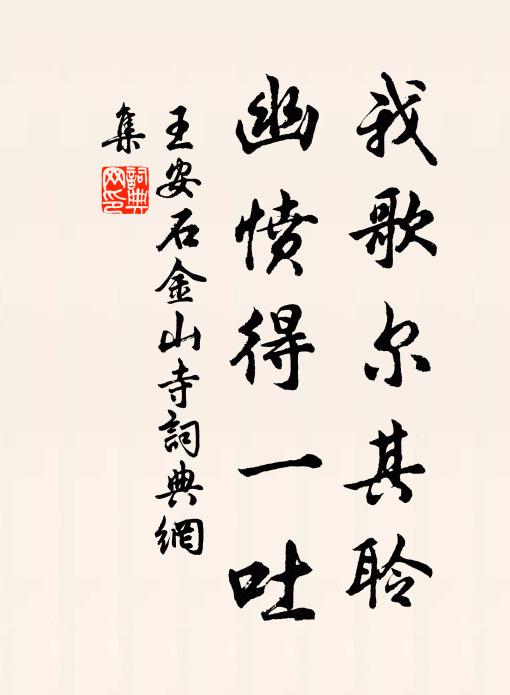 我歌尔其聆
幽愤得一吐
王安石金山寺詞典網
集
詞典
网印